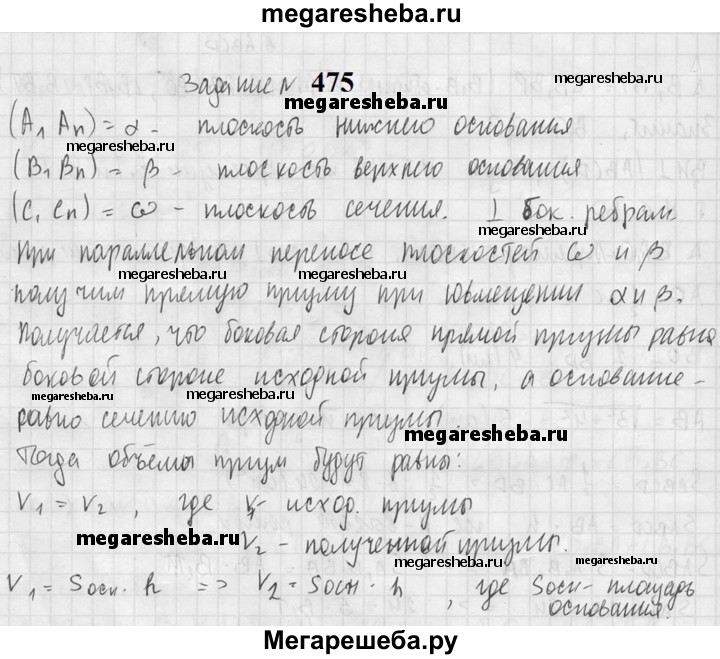 megaresheba.ru
Задание № 475
megaresheba.ru
megaresheba.ru
(A₁ Aₙ) = α - плоскость нижнего основания
megaresheba.ru
(B₁ Bₙ) = β - плоскость верхнего основания
megaresheba.ru
(C₁ Cₙ) = ω - плоскость сечения. ⊥ бок. ребрам.
megaresheba.ru
При параллельном переносе плоскостей ω и β
megaresheba.ru
megaresheba.ru
получим прямую призму при совмещении α и β.
Получается, что боковая сторона прямой призмы равна
megaresheba.ru
боковой стороне исходной призмы, а основание -
megaresheba.ru
megaresheba.ru
равно сечению исходной призмы.
megaresheba.ru
Тогда объёмы призм будут равны:
V₁ = V₂, где V₁ - исход. призмы
megaresheba.ru
V₂ - полученной призмы.
megaresheba.ru
V₁ = Sосн · h => V₂ = Sосн · h, где Sосн - площадь
основания.
Мегарешеба.ру